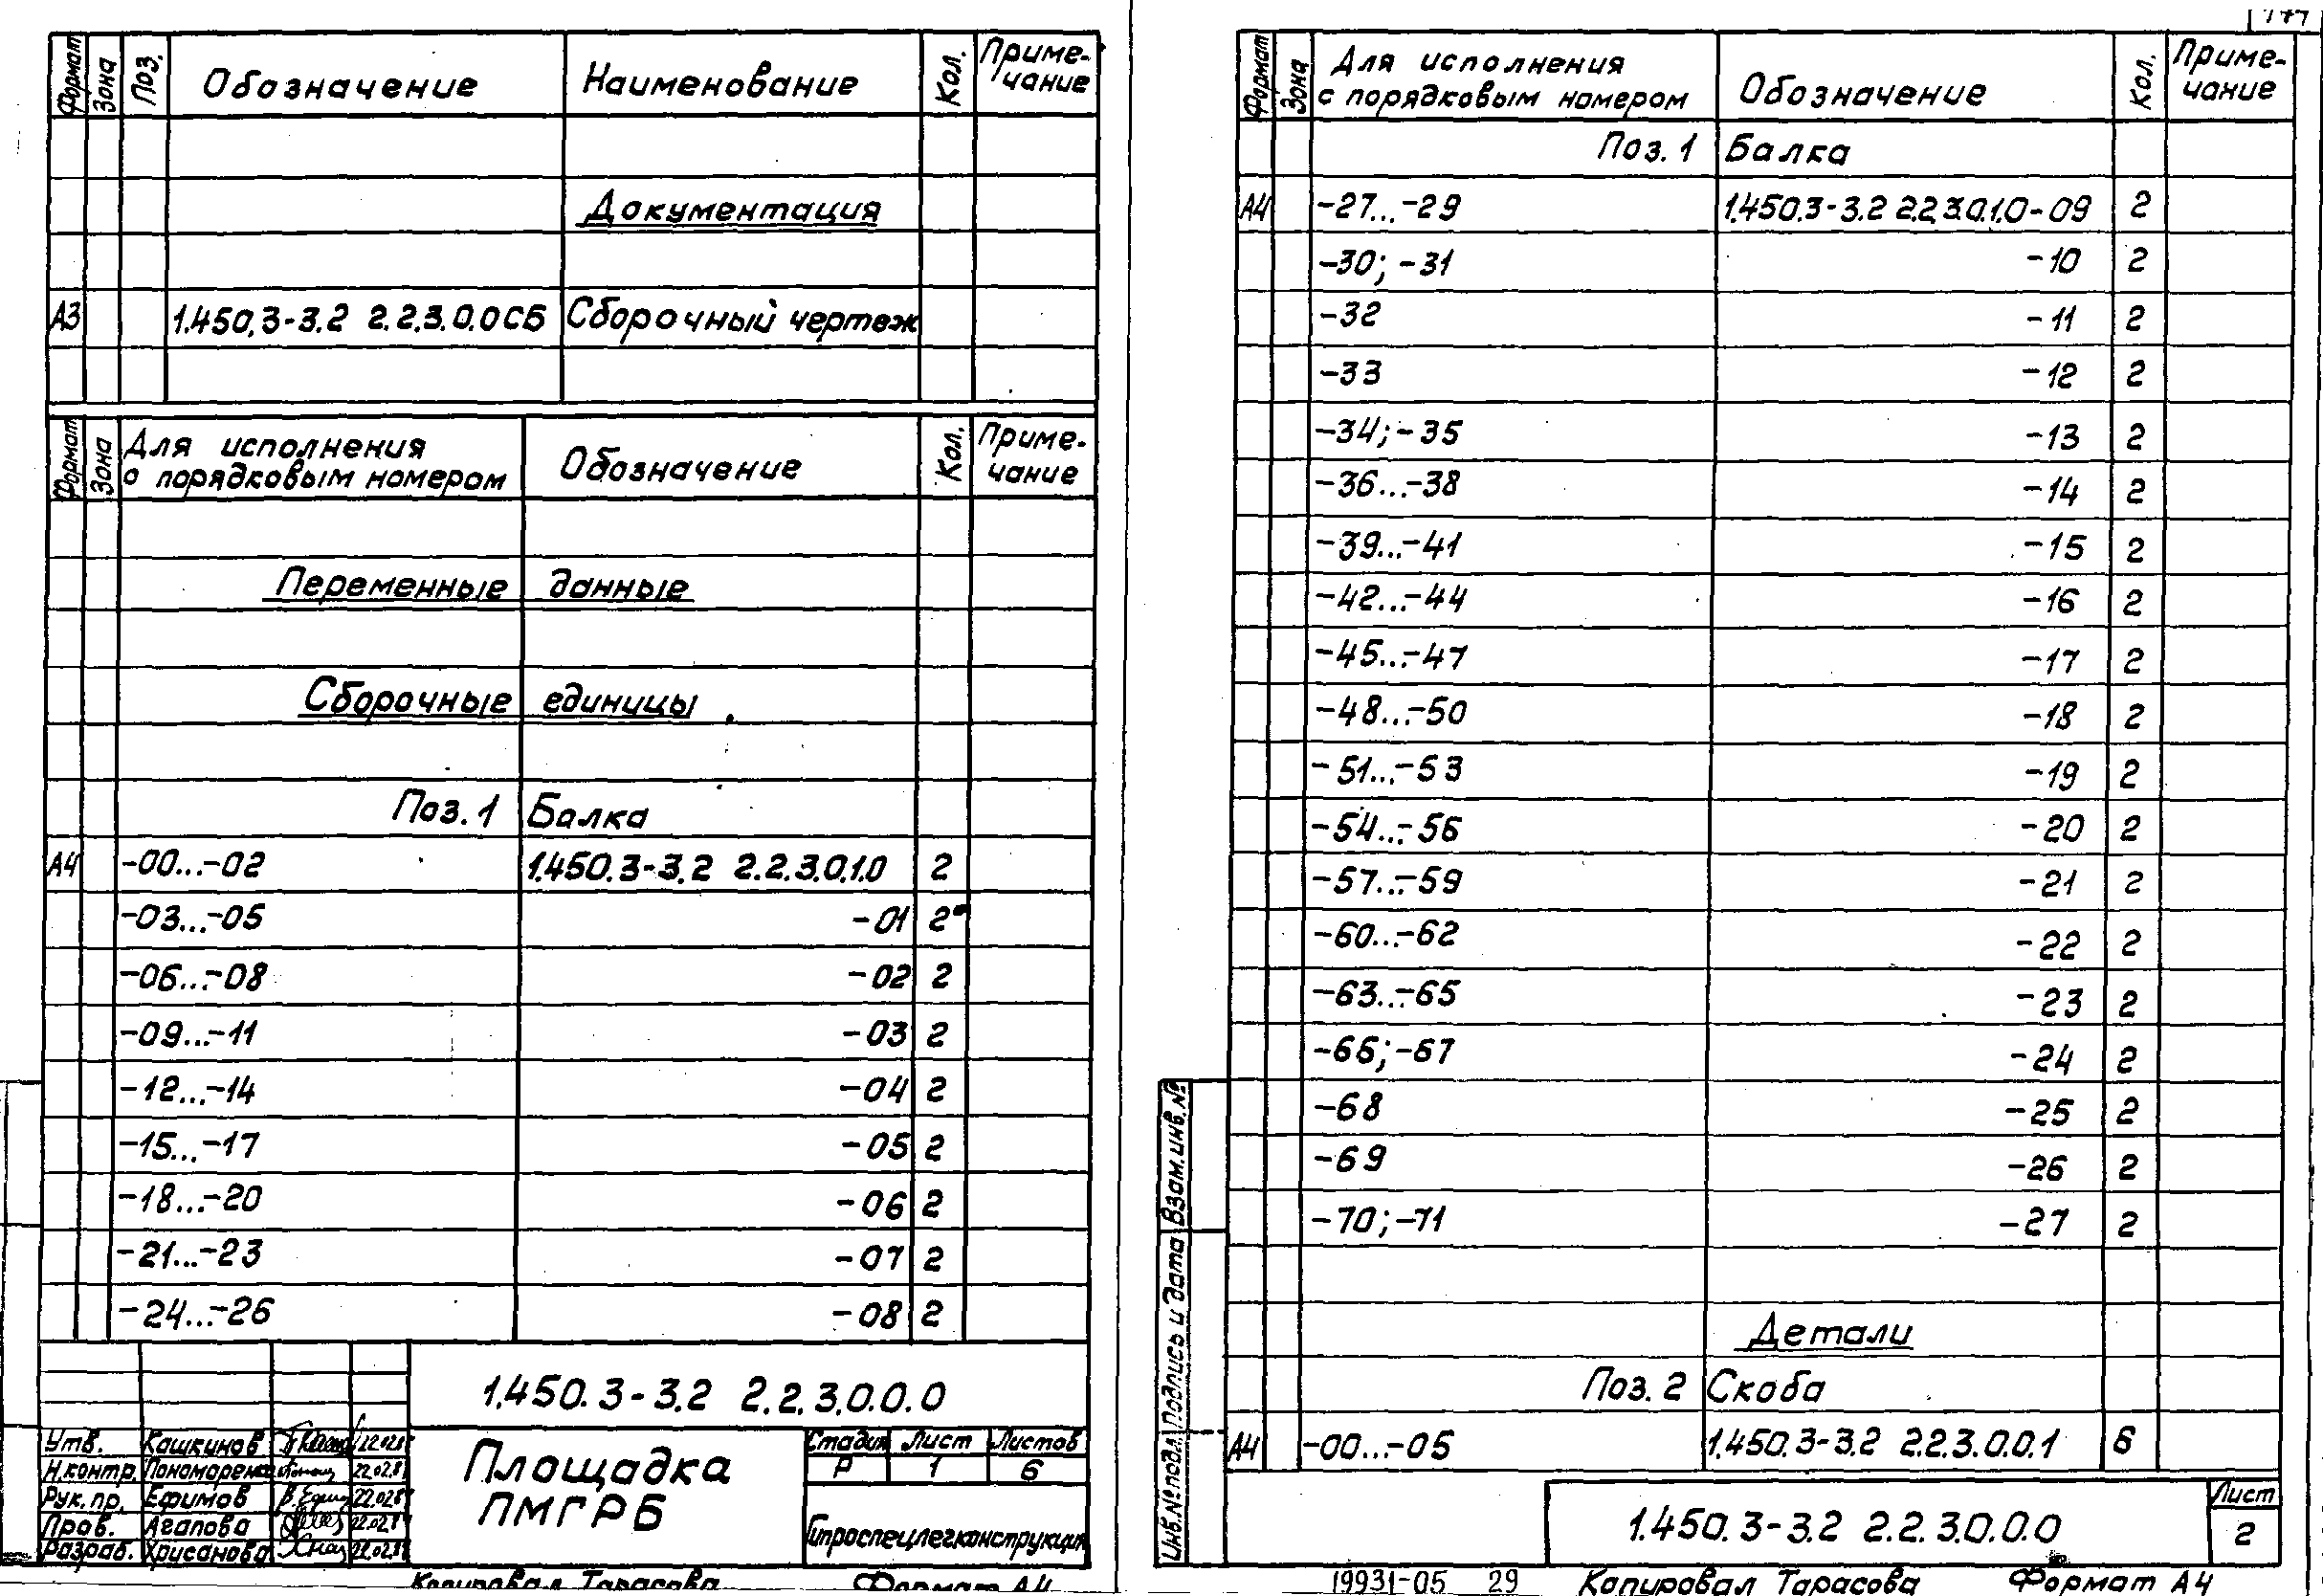 Формат Зона Поз. Обозначение Наименование Кол. Приме-
чание
Документация
А3 1.450.3-3.2 2.2.3.0.0СБ Сборочный чертеж
Формат Зона Для исполнения Обозначение Кол. Приме-
с порядковым номером чание
Переменные данные
Сборочные единицы
Поз. 1 Балка
А4 -00...-02 1.450.3-3.2 2.2.3.0.1.0 2
-03...-05 -01 2
-06...-08 -02 2
-09...-11 -03 2
-12...-14 -04 2
-15...-17 -05 2
-18...-20 -06 2
-21...-23 -07 2
-24...-26 -08 2
1.450.3-3.2 2.2.3.0.0.0
Утв. Кашкинов 22.02.8
Н.контр. Пономоренко 22.02.8
Рук.пр. Ефимов 22.02.8
Пров. Агапова 22.02.8
Разраб. Хрисанова 22.02.8
Площадка
ПМГРБ
Стадия Лист Листов
Р 1 6
Гипроспецлегконструкция
Копировал Тарасова Формат А4
Формат Зона Для исполнения Обозначение Кол. Приме-
с порядковым номером чание
Поз. 1 Балка
А4 -27...-29 1.450.3-3.2 2.2.3.0.1.0-09 2
-30; -31 -10 2
-32 -11 2
-33 -12 2
-34; -35 -13 2
-36...-38 -14 2
-39...-41 -15 2
-42...-44 -16 2
-45...-47 -17 2
-48...-50 -18 2
-51...-53 -19 2
-54...-56 -20 2
-57...-59 -21 2
-60...-62 -22 2
-63...-65 -23 2
-66; -67 -24 2
-68 -25 2
-69 -26 2
-70; -71 -27 2
Детали
Поз. 2 Скоба
А4 -00...-05 1.450.3-3.2 2.2.3.0.0.1 6
Инв.№ подл. Подпись и дата Взам.инв.№
1.450.3-3.2 2.2.3.0.0.0
Лист
2
19931-05 29 Копировал Тарасова Формат А4